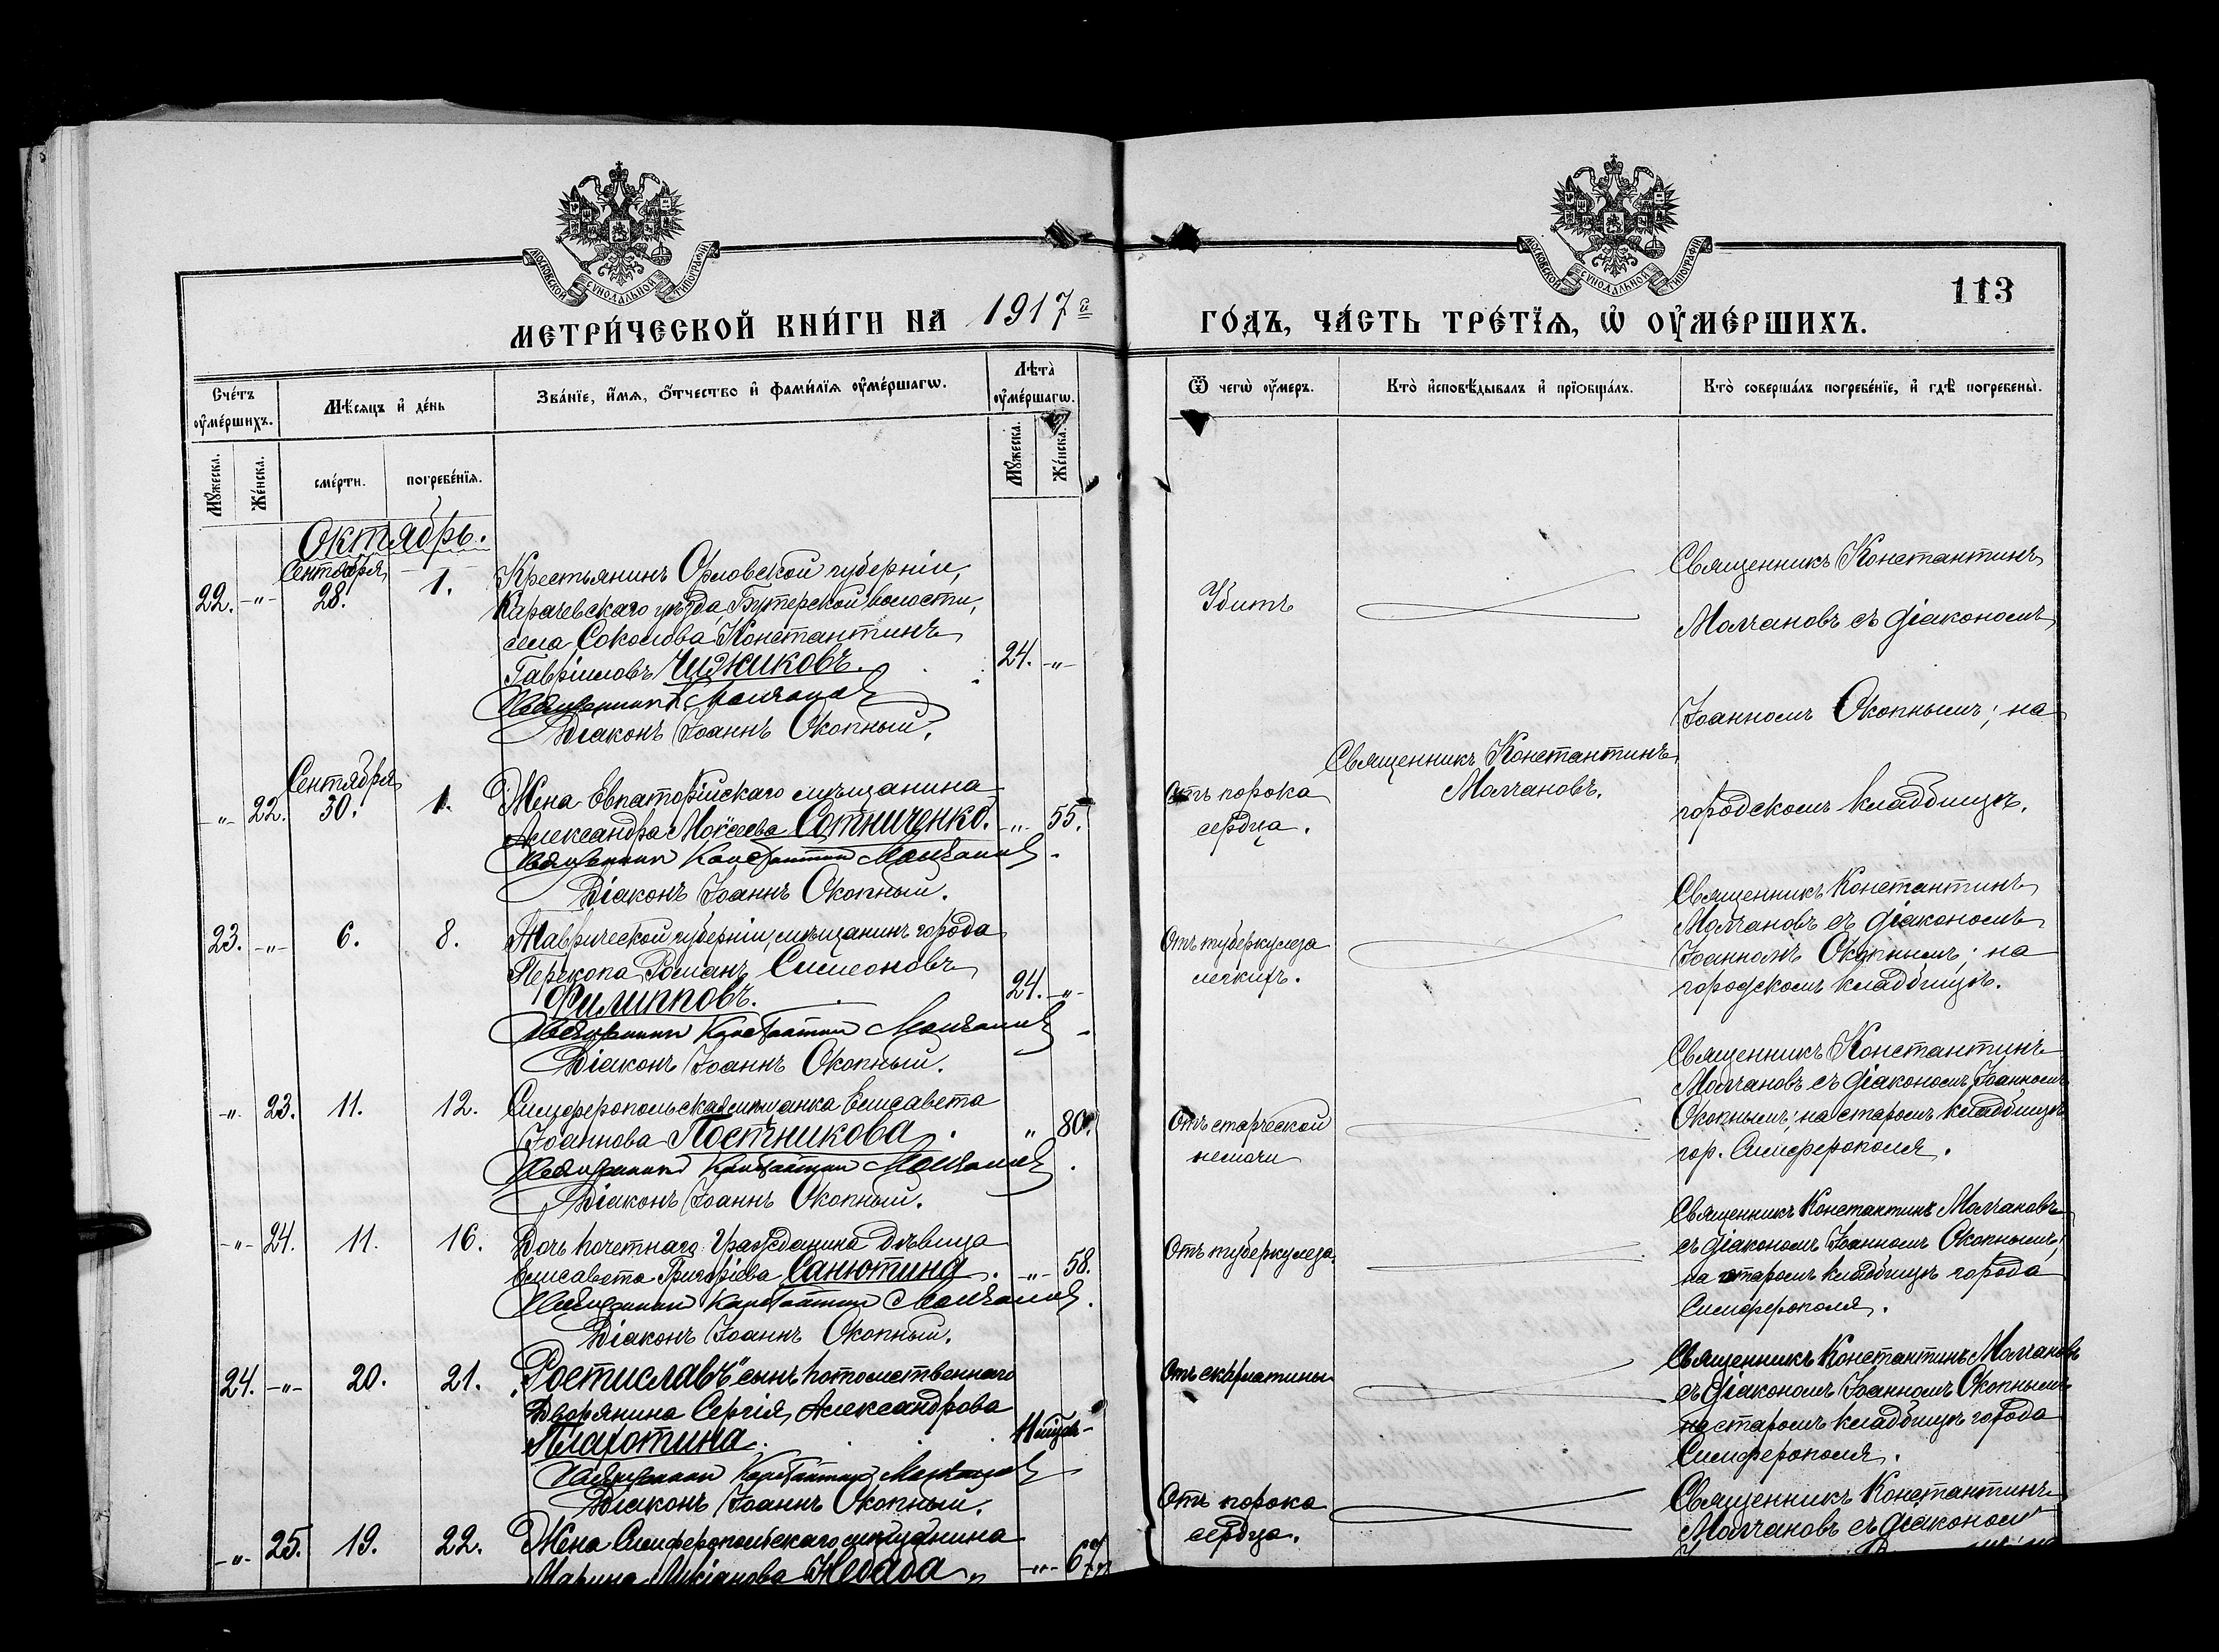 МОСКОВСКОЙ СУНОДАЛЬНОЙ ТИПОГРАФІИ
МОСКОВСКОЙ СУНОДАЛЬНОЙ ТИПОГРАФІИ
113
МЕТРИ́ЧЕСКОЙ КНИ́ГИ НА 1917й ГО́ДЪ, ЧА́СТЬ ТРЕ́ТЇѦ, Ѡ҆ ОУ҆МЕ́РШИХЪ.
Сче́тъ оу҆ме́ршихъ.
Мѣ́сяцъ и҆ де́нь
Зва́нїе, и҆́мѧ, ѻ҆́тчество и҆ фами́лїѧ оу҆ме́ршагѡ.
Лѣта̀ оу҆ме́ршагѡ.
Ѿ чегѡ̀ оу҆́меръ.
Кто̀ и҆сповѣ́дывалъ и҆ прїѡбща́лъ.
Кто̀ соверша́лъ погребе́нїе, и҆ гдѣ̀ погребены̀.
Мꙋ́жеска.
Же́нска.
сме́рти.
погребе́нїѧ.
Мꙋ́жеска.
Же́нска.
Октябрь.
22. -"- Сентября 28. 1.
Крестьянинъ Орловской губерніи,
Карачевскаго уѣзда Бутерской волости,
села Соколова Константинъ
Гавріиловъ Чижиковъ. 24. -"-
Священникъ К. Молчановъ
Діаконъ Іоаннъ Окопный.
Убитъ
Священникъ Константинъ
Молчановъ съ діакономъ
Іоанномъ Окопнымъ; на
городскомъ кладбищѣ.
-"- 22. Сентября 30. 1.
Жена Евпаторійскаго мѣщанина
Александра Моѵсеева Сотниченко. -"- 55.
Священникъ Константинъ Молчановъ
Діаконъ Іоаннъ Окопный.
Отъ порока
сердца.
Священникъ Константинъ
Молчановъ.
23. -"- 6. 8.
Таврической губерніи, мѣщанинъ города
Перекопа Романъ Симеоновъ
Филипповъ. 24. -"-
Священникъ Константинъ Молчановъ
Діаконъ Іоаннъ Окопный.
Отъ туберкулеза
легкихъ.
Священникъ Константинъ
Молчановъ съ діакономъ
Іоанномъ Окопнымъ; на
городскомъ кладбищѣ.
-"- 23. 11. 12.
Симферопольская мѣщанка Елисавета
Іоаннова Постникова. " 80.
Священникъ Константинъ Молчановъ
Діаконъ Іоаннъ Окопный.
Отъ старческой
немочи
Священникъ Константинъ
Молчановъ съ діакономъ Іоанномъ
Окопнымъ; на старомъ кладбищѣ
гор. Симферополя.
-"- 24. 11. 16.
Дочь почетнаго гражданина дѣвица
Елисавета Григоріева Санютина. -"- 58.
Священникъ Константинъ Молчановъ.
Діаконъ Іоаннъ Окопный.
Отъ туберкулеза.
Священникъ Константинъ Молчановъ
съ діакономъ Іоанномъ Окопнымъ;
на старомъ кладбищѣ города
Симферополя.
24. -"- 20. 21.
"Ростиславъ" сынъ потомственнаго
Дворянина Сергія Александрова
Плахотина. 11 мѣс. -
Священникъ Константинъ Молчановъ
Діаконъ Іоаннъ Окопный.
Отъ скарлатины
Священникъ Константинъ Молчановъ
съ діакономъ Іоанномъ Окопнымъ
на старомъ кладбищѣ города
Симферополя.
-"- 25. 19. 22.
Жена Симферопольскаго мѣщанина
Марина -"- 67
Отъ порока
сердца.
Священникъ Константинъ
Молчановъ съ діакономъ